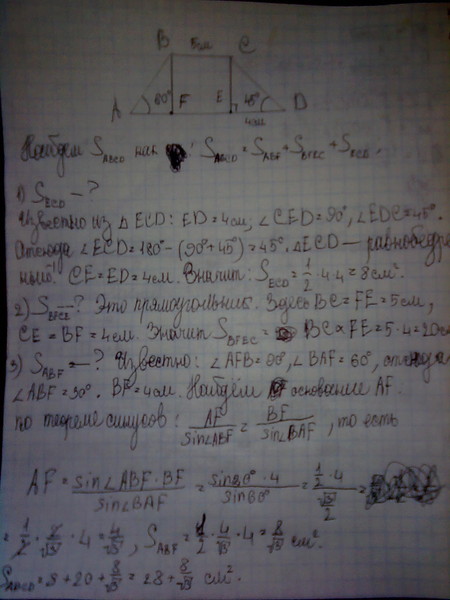 B 5см C
A 60° F E 45° D
4см
Найдем S_ABCD как : S_ABCD = S_ABF + S_BFEC + S_ECD.
1) S_ECD — ?
Известно из △ ECD: ED = 4см, ∠CED = 90°, ∠EDC = 45°.
Отсюда ∠ECD = 180° − (90° + 45°) = 45°. △ECD — равнобедрен
ный. CE = ED = 4см. Значит: S_ECD = 1/2 · 4 · 4 = 8 см².
2) S_BFEC — ? Это прямоугольник. Здесь BC = FE = 5см,
CE = BF = 4см. Значит S_BFEC = BC × FE = 5 · 4 = 20см
3) S_ABF = — ? Известно: ∠AFB = 90°, ∠BAF = 60°, отсюда
∠ABF = 30°. BF = 4см. Найдём основание AF.
по теореме синусов: AF/sin∠ABF = BF/sin∠BAF, то есть
AF = sin∠ABF · BF / sin∠BAF = sin30° · 4 / sin60° = 1/2 · 4 / √3/2 =
= 1/2 · 2/√3 · 4 = 4/√3, S_ABF = 1/2 · 4/√3 · 4 = 8/√3 см².
S_ABCD = 8 + 20 + 8/√3 = 28 + 8/√3 см².